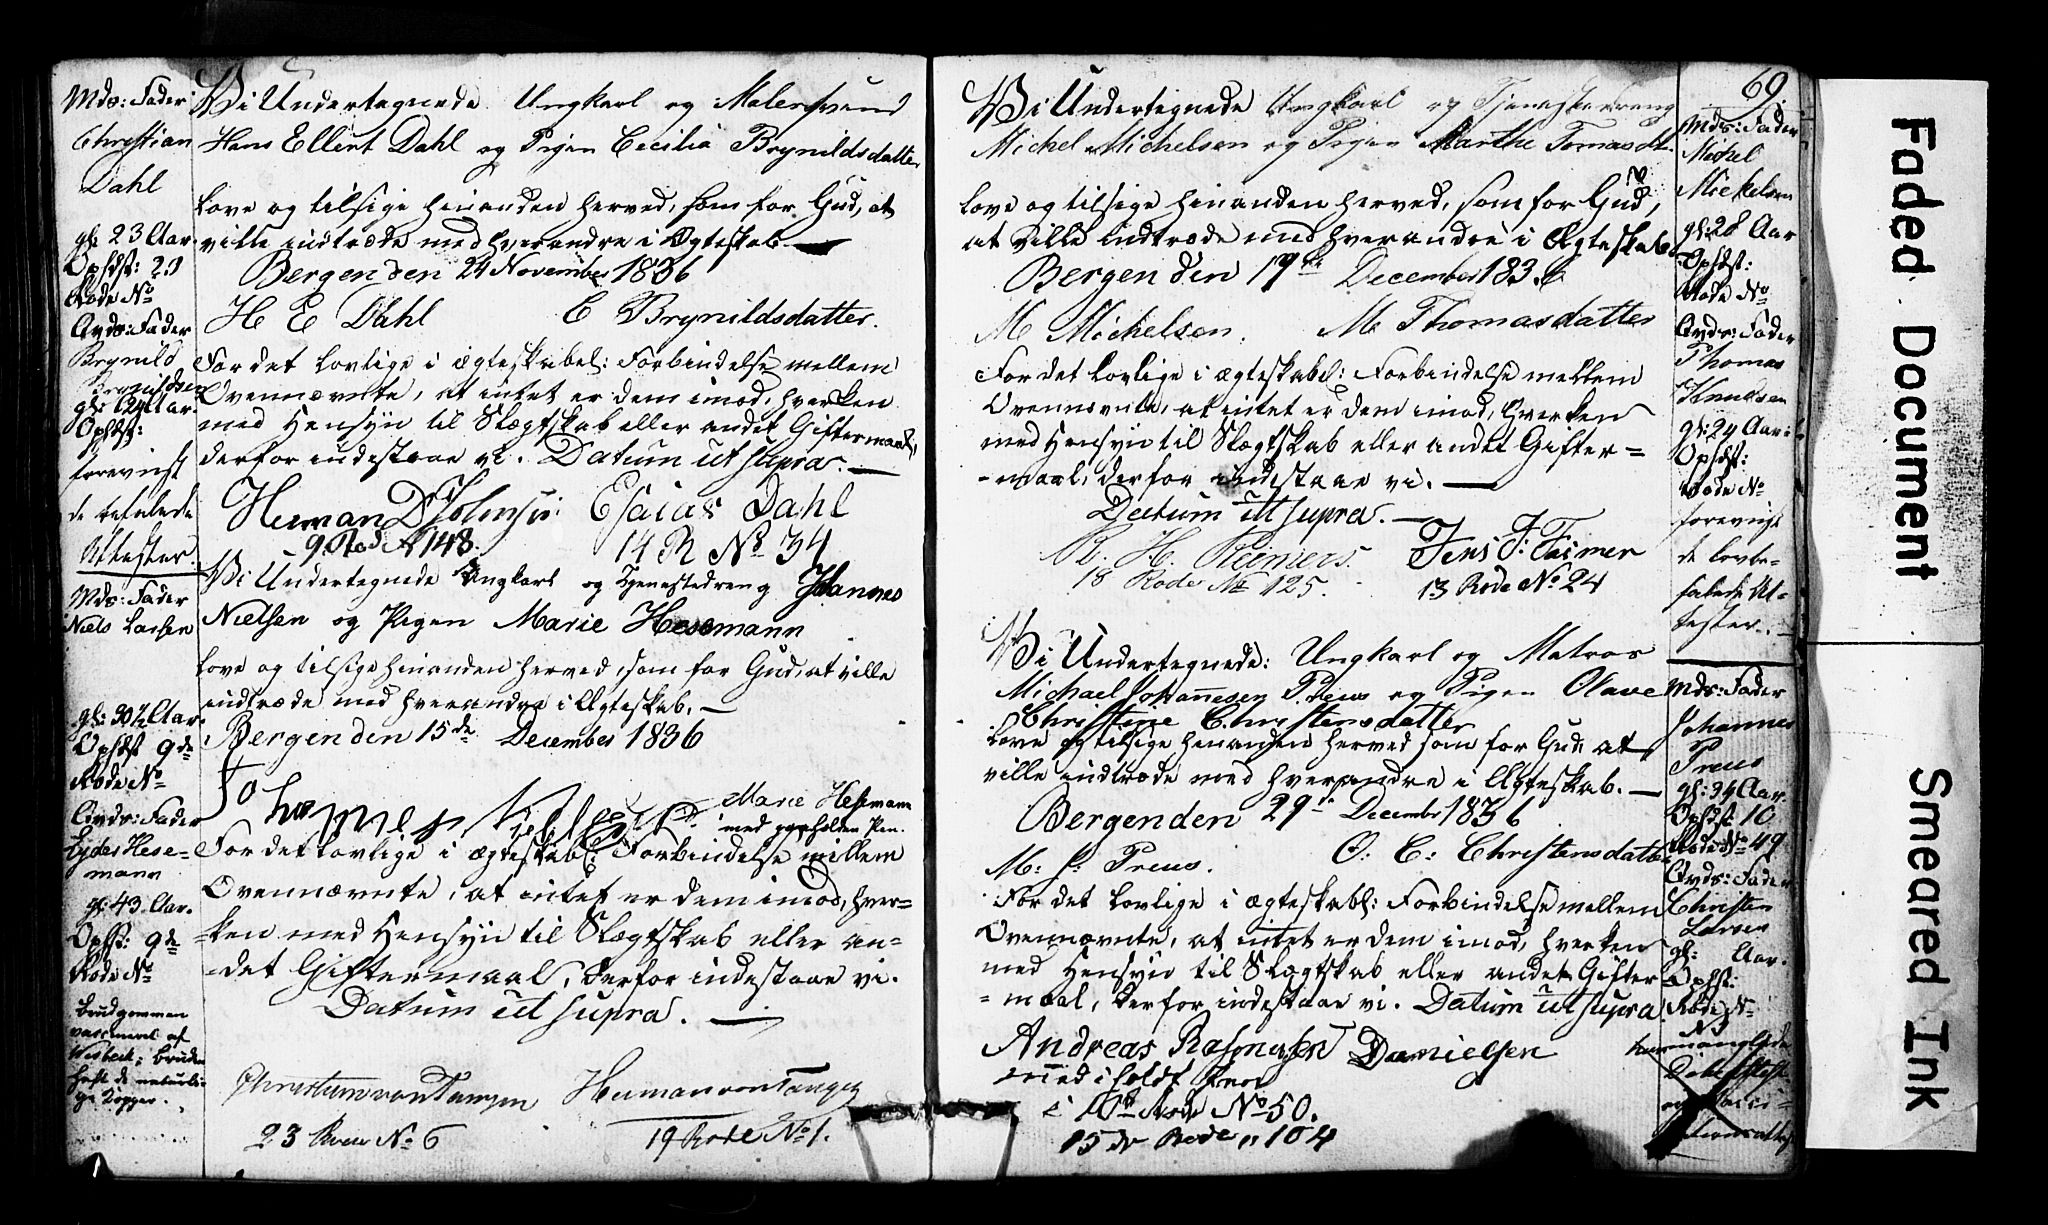 Mds: Fader
Christian
Dahl
gl: 23 Aar
Opfdst:
Rode No
Qvds: Fader
Brynild
Brynildsen
gl: 24 Aar.
Opfdst:
forevist
de befalede
Attester.
Wi Undertegnede Ungkarl og Malersvend
Hans Ellert Dahl og Pigen Cecilia Brynildsdatter
love og tilsige hinanden herved, som for Gud, at
ville indtræde med hverandre i Ægteskab.
Bergen den 24 November 1836
H E Dahl C Brynildsdatter.
For det lovlige i ægteskabel: Forbindelse mellem
Ovennævnte, at intet er dem imod, hverken
med Hensyn til Slægtskab eller andet Giftermaal,
derfor indestaae vi. Datum ut supra.
Herman D Esaias Dahl
9 Rod No 148. 14 R No 34
Mds: Fader
Niels Larsen
gl: 30½ Aar.
Opfdst 9de
Rode No
Qvds: Fader
Lyder Hese-
mann
gl: 43. Aar.
Opfst: 9de
Rode No
Brudgommen
vaccineret af
Wisbech; Bruden
havt de naturli-
ge Kopper.
Wi Undertegnede Ungkarl og Tjenestedreng Johannes
Nielsen og Pigen Marie Hesemann
love og tilsige hinanden herved, som for Gud, at ville
indtræde med hverandre i Ægteskab.
Bergen den 15de December 1836
Johannes Nielsen Marie Hesemann
med paaholden Pen.
For det lovlige i ægteskabl: Forbindelse mellem
Ovennævnte, at intet er dem imod, hver-
-ken med Hensyn til Slægtskab eller an-
-det Giftermaal, derfor indestaae vi.
Datum ut supra.
Christian von Tangen Herman von Tangen
23 Rode No 6 19 Rode No 1.
69
Wi Undertegnede Ungkarl og Tjenestedreng
Michel Michelsen og Pigen Marthe Tomasdtr
love og tilsige hinanden herved, som for Gud,
at ville indtræde med hverandre i Ægteskab.
Bergen den 19de December 1836
M Michelsen. M Thomasdatter
For det lovlige i ægteskabl: Forbindelse mellem
Ovennævnte, at intet er dem imod, hverken
med Hensyn til Slægtskab eller andet Gifter=
-maal, derfor indestaae vi.
Datum ut supra.
R. H. Reimers. Jens J: Faimer
18 Rode No 125. 13 Rode No 24
Mds: Fader
Michel
Mickelsen
gl: 28 Aar
Opfdst:
Rode No
Qvds: Fader
Thomas
Knudsen
gl: 29 Aar.
Opfdst:
Rode No
forevist
de lovbe-
falede At-
tester.
Wi Undertegnede: Ungkarl og Matros
Michael Johannesen Preus og Pigen Olave
Christine Christensdatter
Love og tilsige hinanden herved som for Gud: at
ville indtræde med hverandre i Ægteskab.
Bergen den 29 December 1836
M: J: Preus. O: C: Christensdatter
For det lovlige i ægteskabl: Forbindelse mellem
Ovennævnte, at intet er dem imod, hverken
med Hensyn til Slægtskab eller andet Gifter-
=maal, derfor indestaae vi. Datum ut supra
Andreas Rasmussen Danielsen
med i holdt Pen
i 10de Rode No 50.
15 de Rode " 104
Mds: Fader
Johannes
Preus
gl: 34 Aar.
Opfdst 10
Rode No 49
Qvds: Fader
Christen
Larsen
gl: Aar.
Opfst:
Rode N-
N3
Faded Document
Smeared Ink